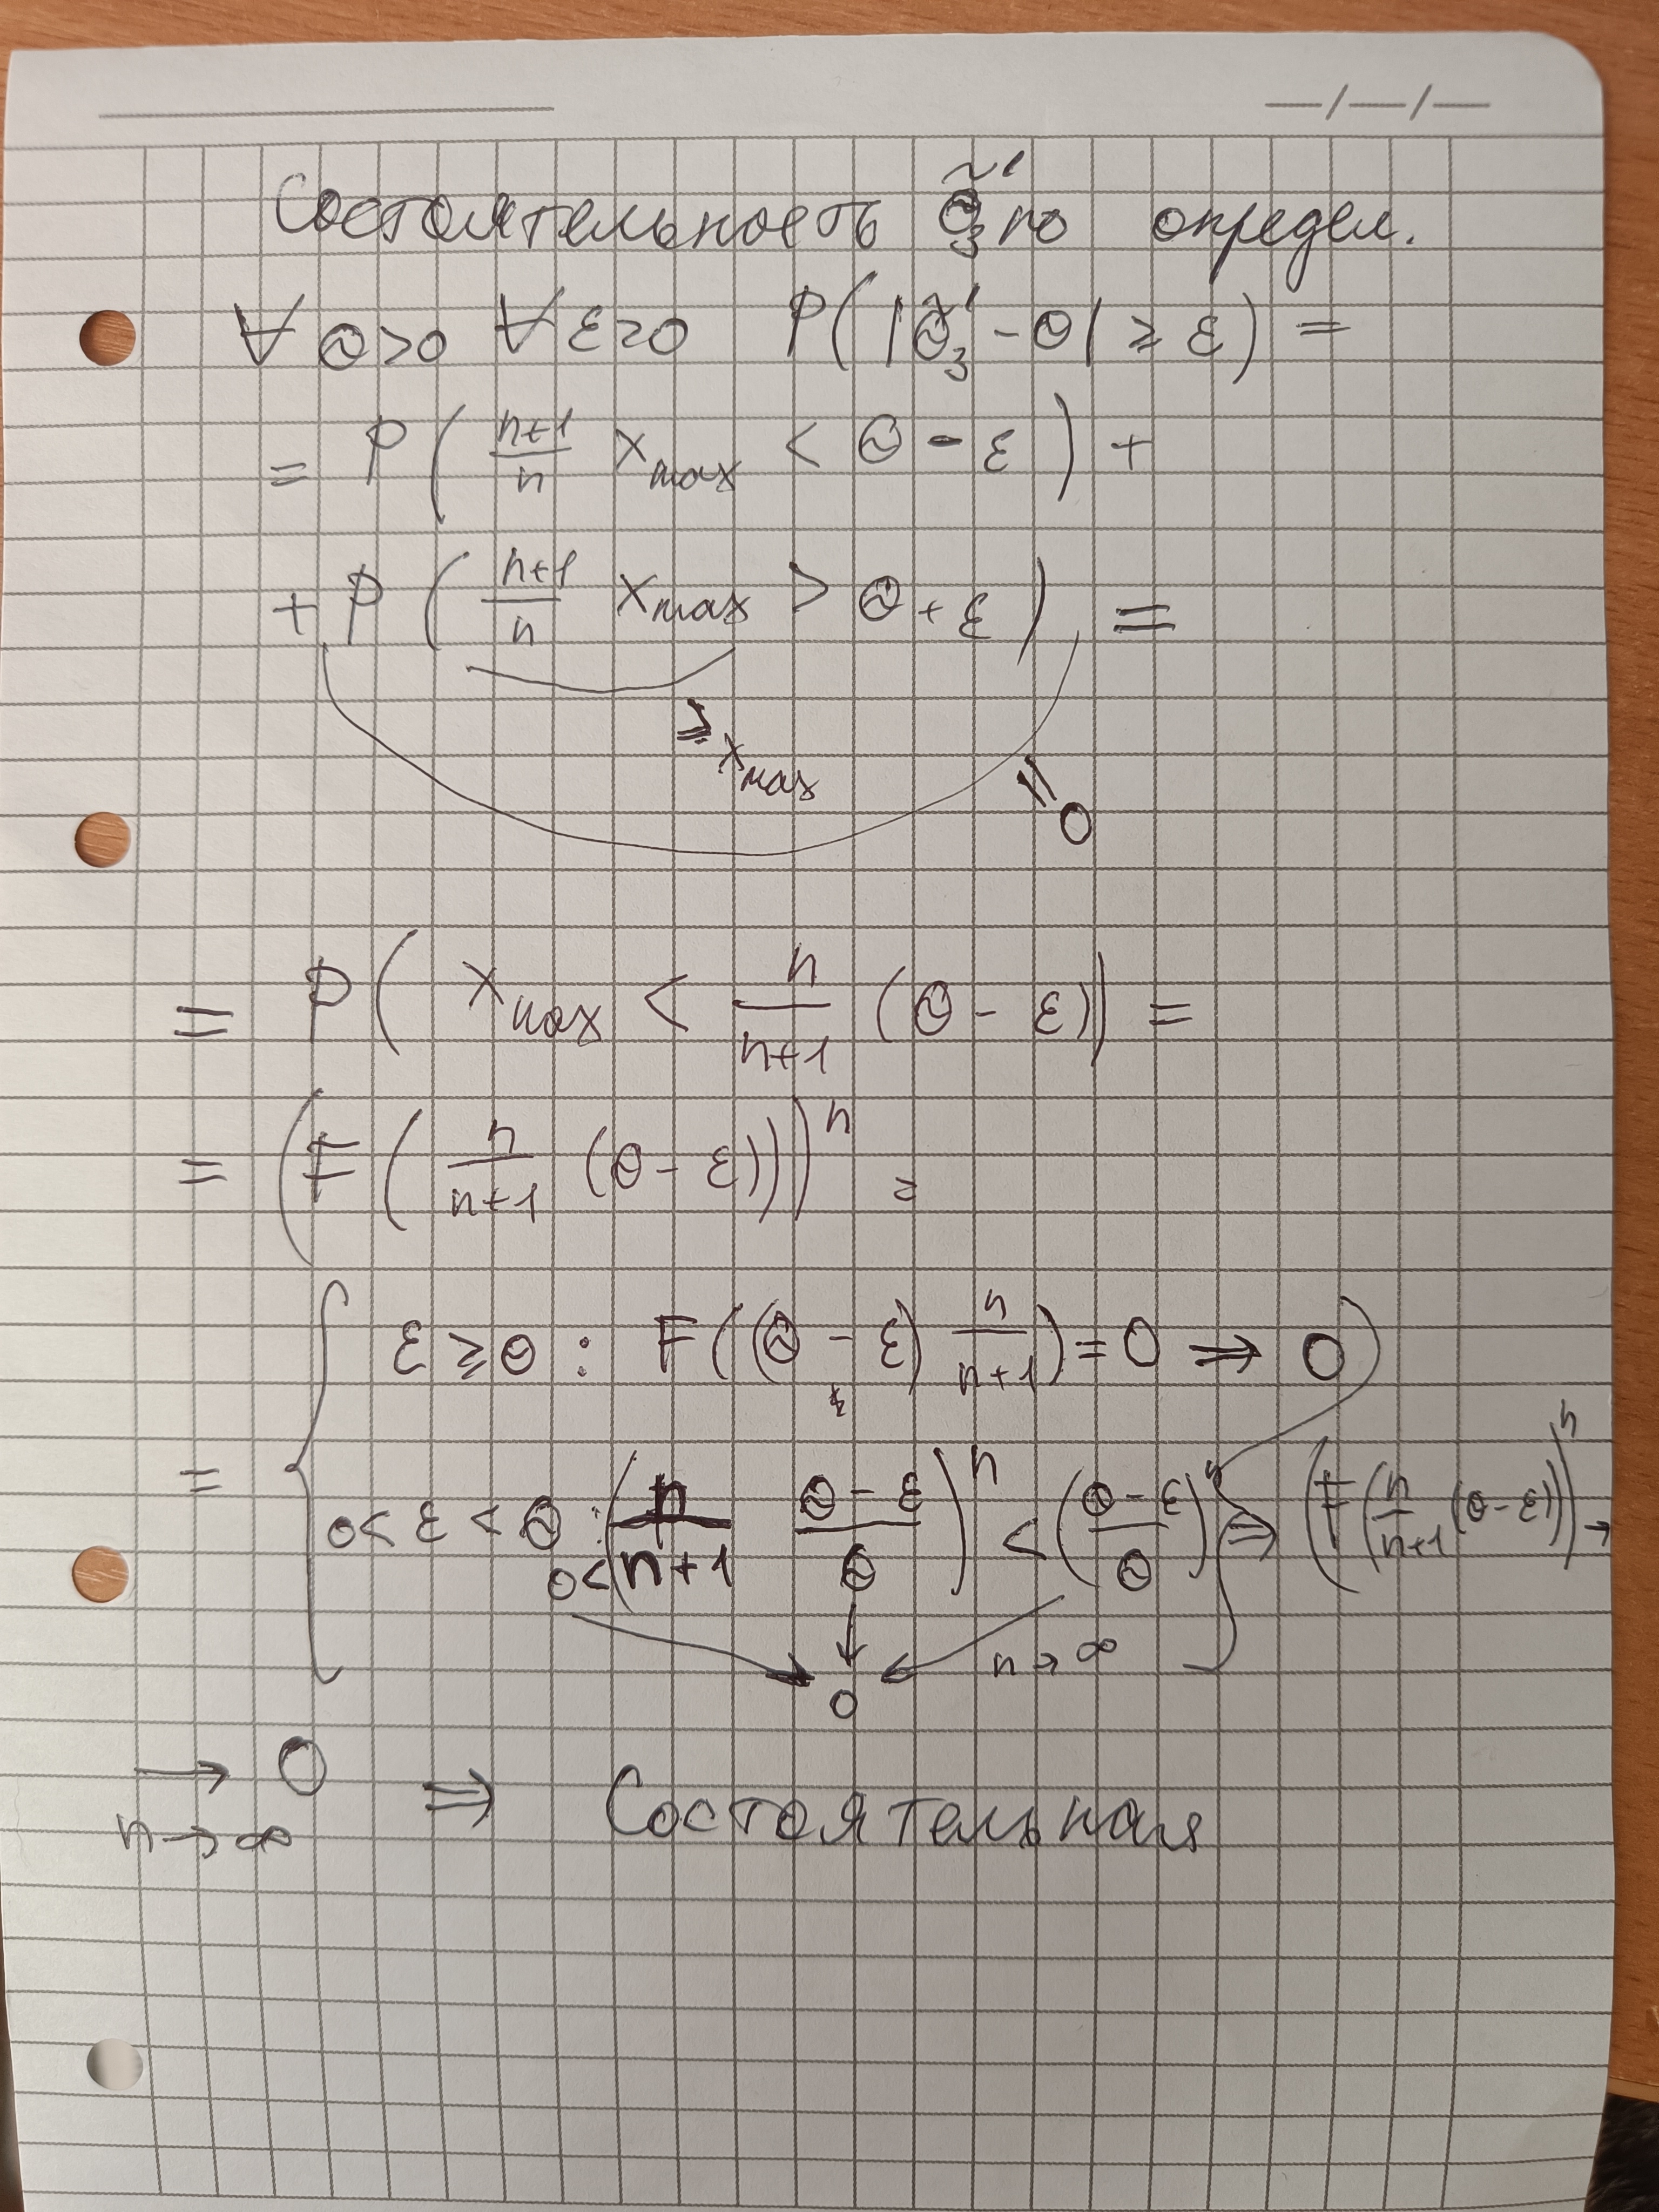 Состоятельность θ̃₃' по определ.
∀ θ>0 ∀ ε>0 P(|θ̃₃' - θ| ⩾ ε) =
= P( (n+1)/n x_max < θ - ε ) +
+ P ( (n+1)/n x_max > θ + ε ) =
⩾ x_max
= 0
= P( x_max < n/(n+1) (θ - ε)) =
= (F( n/(n+1) (θ - ε)))ⁿ =
= { ε ⩾ θ : F((θ - ε) n/(n+1)) = 0 ⇒ 0
0 < ε < θ : 0 < (n/(n+1) (θ - ε)/θ)ⁿ < ((θ - ε)/θ)ⁿ } ⇒ (F(n/(n+1) (θ - ε)))ⁿ →
↓ n → ∞
0
→ 0 ⇒ Состоятельная
n → ∞